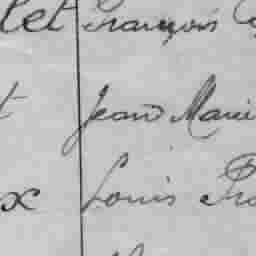 let François
t Jean Marie
x Louis